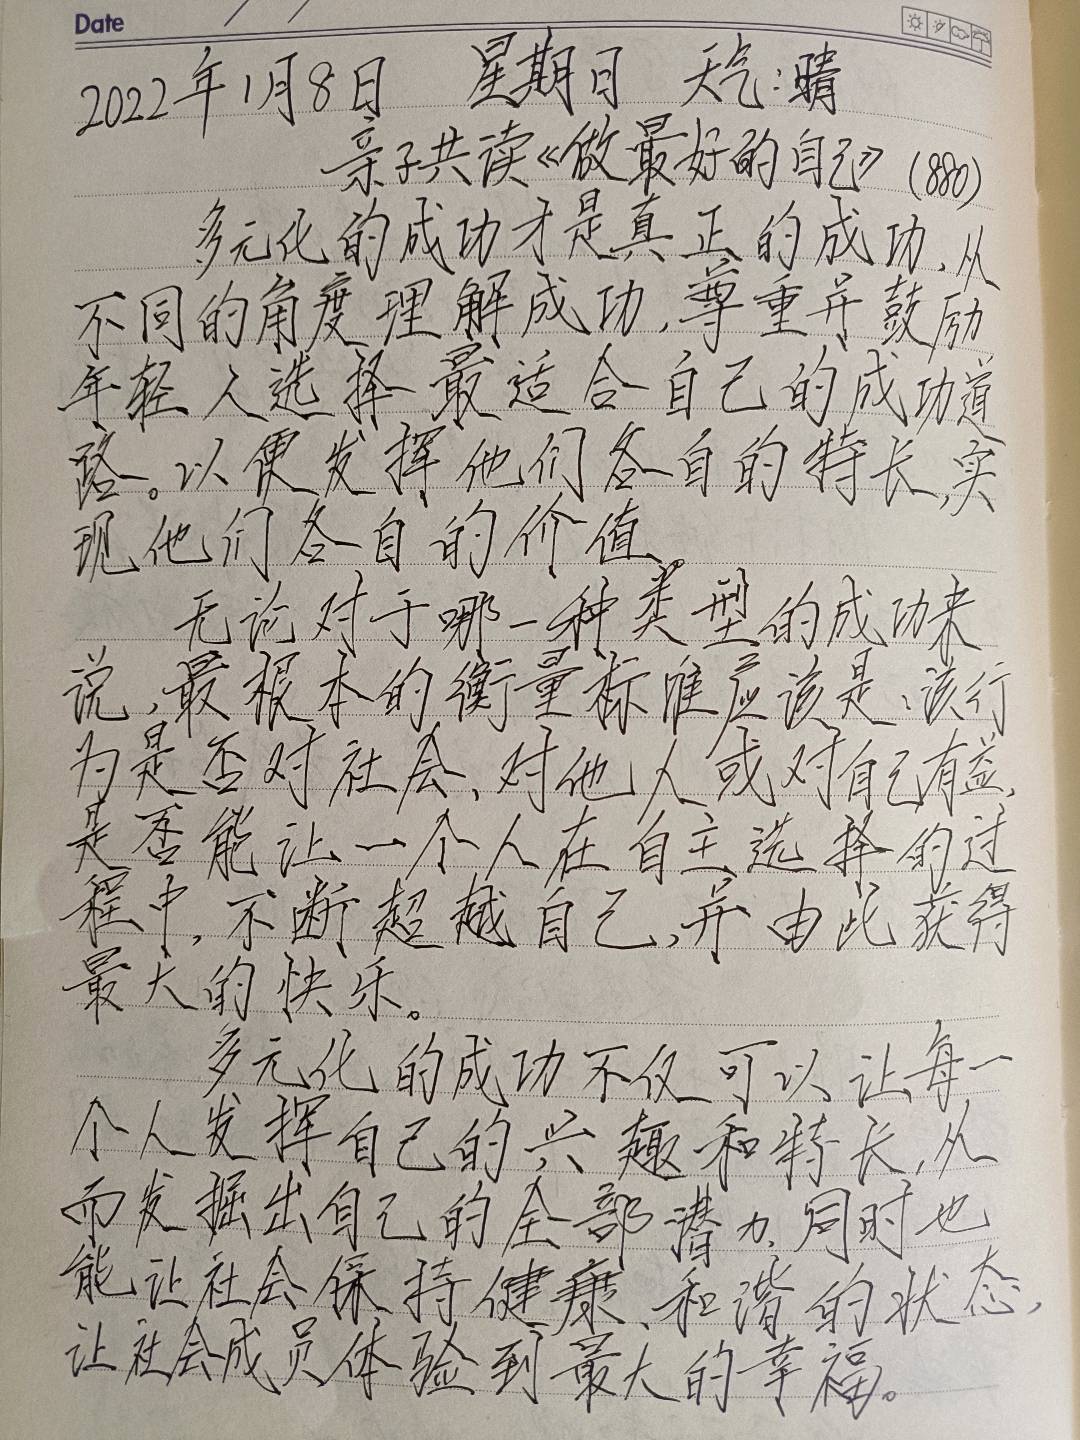 Date
2022年1月8日 星期日 天气:晴
亲子共读《做最好的自己》(880)
多元化的成功才是真正的成功,从
不同的角度理解成功,尊重并鼓励
年轻人选择最适合自己的成功道
路。以便发挥他们各自的特长,实
现他们各自的价值。
无论对于哪一种类型的成功来
说,最根本的衡量标准应该是:该行
为是否对社会、对他人或对自己有益,
是否能让一个人在自主选择的过
程中,不断超越自己,并由此获得
最大的快乐。
多元化的成功不仅可以让每一
个人发挥自己的兴趣和特长,从
而发掘出自己的全部潜力,同时也
能让社会保持健康、和谐的状态,
让社会成员体验到最大的幸福。